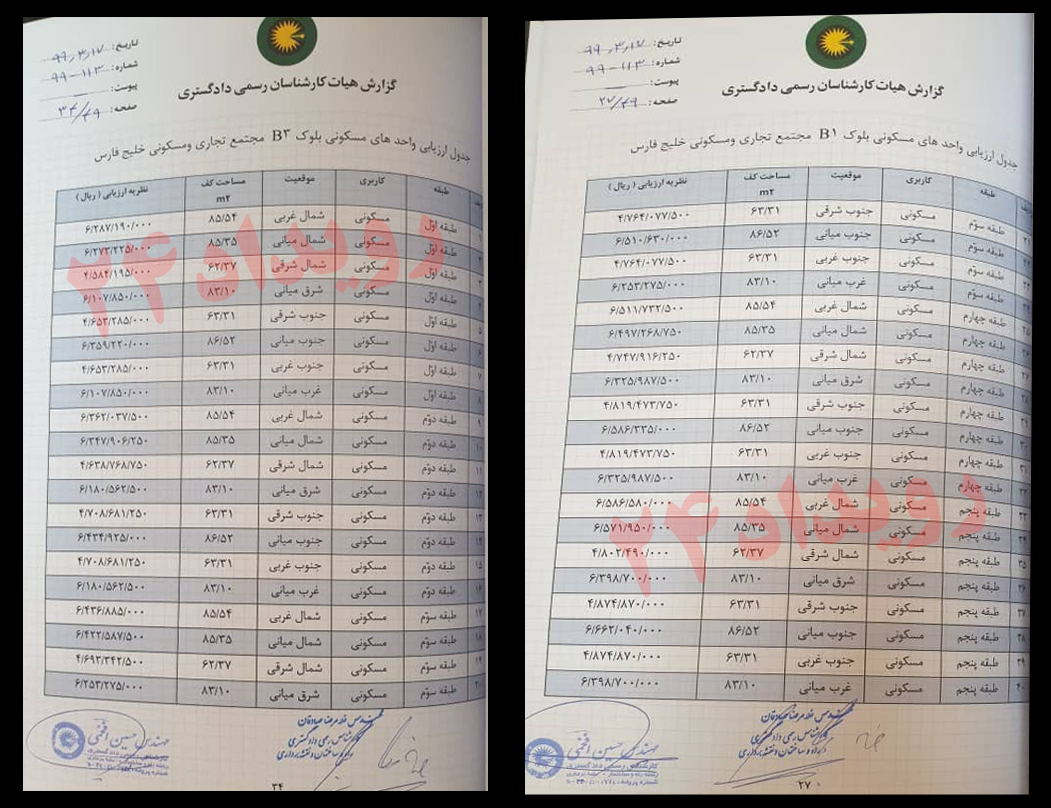 تاریخ: ۹۹,۳,۱۷
شماره: ۹۹-۱۱۳
پیوست:
صفحه: ۳۴/۴۹
گزارش هیات کارشناسان رسمی دادگستری
جدول ارزیابی واحد های مسکونی بلوک B۳ مجتمع تجاری ومسکونی خلیج فارس
ردیف طبقه کاربری موقعیت مساحت کف m۲ نظریه ارزیابی ( ریال )
۱ طبقه اوّل مسکونی شمال غربی ۸۵/۵۴ ۶/۲۸۷/۱۹۰/۰۰۰
۲ طبقه اوّل مسکونی شمال میانی ۸۵/۳۵ ۶/۲۷۳/۲۲۵/۰۰۰
۳ طبقه اوّل مسکونی شمال شرقی ۶۲/۳۷ ۴/۵۸۴/۱۹۵/۰۰۰
۴ طبقه اوّل مسکونی شرق میانی ۸۳/۱۰ ۶/۱۰۷/۸۵۰/۰۰۰
۵ طبقه اوّل مسکونی جنوب شرقی ۶۳/۳۱ ۴/۶۵۳/۲۸۵/۰۰۰
۶ طبقه اوّل مسکونی جنوب میانی ۸۶/۵۲ ۶/۳۵۹/۲۲۰/۰۰۰
۷ طبقه اوّل مسکونی جنوب غربی ۶۳/۳۱ ۴/۶۵۳/۲۸۵/۰۰۰
۸ طبقه اوّل مسکونی غرب میانی ۸۳/۱۰ ۶/۱۰۷/۸۵۰/۰۰۰
۹ طبقه دوّم مسکونی شمال غربی ۸۵/۵۴ ۶/۳۶۲/۰۳۷/۵۰۰
۱۰ طبقه دوّم مسکونی شمال میانی ۸۵/۳۵ ۶/۳۴۷/۹۰۶/۲۵۰
۱۱ طبقه دوّم مسکونی شمال شرقی ۶۲/۳۷ ۴/۶۳۸/۷۶۸/۷۵۰
۱۲ طبقه دوّم مسکونی شرق میانی ۸۳/۱۰ ۶/۱۸۰/۵۶۲/۵۰۰
۱۳ طبقه دوّم مسکونی جنوب شرقی ۶۳/۳۱ ۴/۷۰۸/۶۸۱/۲۵۰
۱۴ طبقه دوّم مسکونی جنوب میانی ۸۶/۵۲ ۶/۴۳۴/۹۲۵/۰۰۰
۱۵ طبقه دوّم مسکونی جنوب غربی ۶۳/۳۱ ۴/۷۰۸/۶۸۱/۲۵۰
۱۶ طبقه دوّم مسکونی غرب میانی ۸۳/۱۰ ۶/۱۸۰/۵۶۲/۵۰۰
۱۷ طبقه سوّم مسکونی شمال غربی ۸۵/۵۴ ۶/۴۳۶/۸۸۵/۰۰۰
۱۸ طبقه سوّم مسکونی شمال میانی ۸۵/۳۵ ۶/۴۲۲/۵۸۷/۵۰۰
۱۹ طبقه سوّم مسکونی شمال شرقی ۶۲/۳۷ ۴/۶۹۳/۳۴۲/۵۰۰
۲۰ طبقه سوّم مسکونی شرق میانی ۸۳/۱۰ ۶/۲۵۳/۲۷۵/۰۰۰
رویداد۲۴
مهندس غلامرضا صادقیان
کارشناس رسمی دادگستری
راه و ساختمان و نقشه برداری
مهندس حسین افخمی
کارشناس رسمی دادگستری
۳۴
تاریخ: ۹۹,۳,۱۷
شماره: ۹۹-۱۱۳
پیوست:
صفحه: ۲۷/۴۹
گزارش هیات کارشناسان رسمی دادگستری
جدول ارزیابی واحد های مسکونی بلوک B۱ مجتمع تجاری ومسکونی خلیج فارس
ردیف طبقه کاربری موقعیت مساحت کف m۲ نظریه ارزیابی ( ریال )
۲۱ طبقه سوّم مسکونی جنوب شرقی ۶۳/۳۱ ۴/۷۶۴/۰۷۷/۵۰۰
۲۲ طبقه سوّم مسکونی جنوب میانی ۸۶/۵۲ ۶/۵۱۰/۶۳۰/۰۰۰
۲۳ طبقه سوّم مسکونی جنوب غربی ۶۳/۳۱ ۴/۷۶۴/۰۷۷/۵۰۰
۲۴ طبقه سوّم مسکونی غرب میانی ۸۳/۱۰ ۶/۲۵۳/۲۷۵/۰۰۰
۲۵ طبقه چهارم مسکونی شمال غربی ۸۵/۵۴ ۶/۵۱۱/۷۳۲/۵۰۰
۲۶ طبقه چهارم مسکونی شمال میانی ۸۵/۳۵ ۶/۴۹۷/۲۶۸/۷۵۰
۲۷ طبقه چهارم مسکونی شمال شرقی ۶۲/۳۷ ۴/۷۴۷/۹۱۶/۲۵۰
۲۸ طبقه چهارم مسکونی شرق میانی ۸۳/۱۰ ۶/۳۲۵/۹۸۷/۵۰۰
۲۹ طبقه چهارم مسکونی جنوب شرقی ۶۳/۳۱ ۴/۸۱۹/۴۷۳/۷۵۰
۳۰ طبقه چهارم مسکونی جنوب میانی ۸۶/۵۲ ۶/۵۸۶/۳۳۵/۰۰۰
۳۱ طبقه چهارم مسکونی جنوب غربی ۶۳/۳۱ ۴/۸۱۹/۴۷۳/۷۵۰
۳۲ طبقه چهارم مسکونی غرب میانی ۸۳/۱۰ ۶/۳۲۵/۹۸۷/۵۰۰
۳۳ طبقه پنجم مسکونی شمال غربی ۸۵/۵۴ ۶/۵۸۶/۵۸۰/۰۰۰
۳۴ طبقه پنجم مسکونی شمال میانی ۸۵/۳۵ ۶/۵۷۱/۹۵۰/۰۰۰
۳۵ طبقه پنجم مسکونی شمال شرقی ۶۲/۳۷ ۴/۸۰۲/۴۹۰/۰۰۰
۳۶ طبقه پنجم مسکونی شرق میانی ۸۳/۱۰ ۶/۳۹۸/۷۰۰/۰۰۰
۳۷ طبقه پنجم مسکونی جنوب شرقی ۶۳/۳۱ ۴/۸۷۴/۸۷۰/۰۰۰
۳۸ طبقه پنجم مسکونی جنوب میانی ۸۶/۵۲ ۶/۶۶۲/۰۴۰/۰۰۰
۳۹ طبقه پنجم مسکونی جنوب غربی ۶۳/۳۱ ۴/۸۷۴/۸۷۰/۰۰۰
۴۰ طبقه پنجم مسکونی غرب میانی ۸۳/۱۰ ۶/۳۹۸/۷۰۰/۰۰۰
رویداد۲۴
مهندس غلامرضا صادقیان
کارشناس رسمی دادگستری
راه و ساختمان و نقشه برداری
مهندس حسین افخمی
کارشناس رسمی دادگستری
۲۷